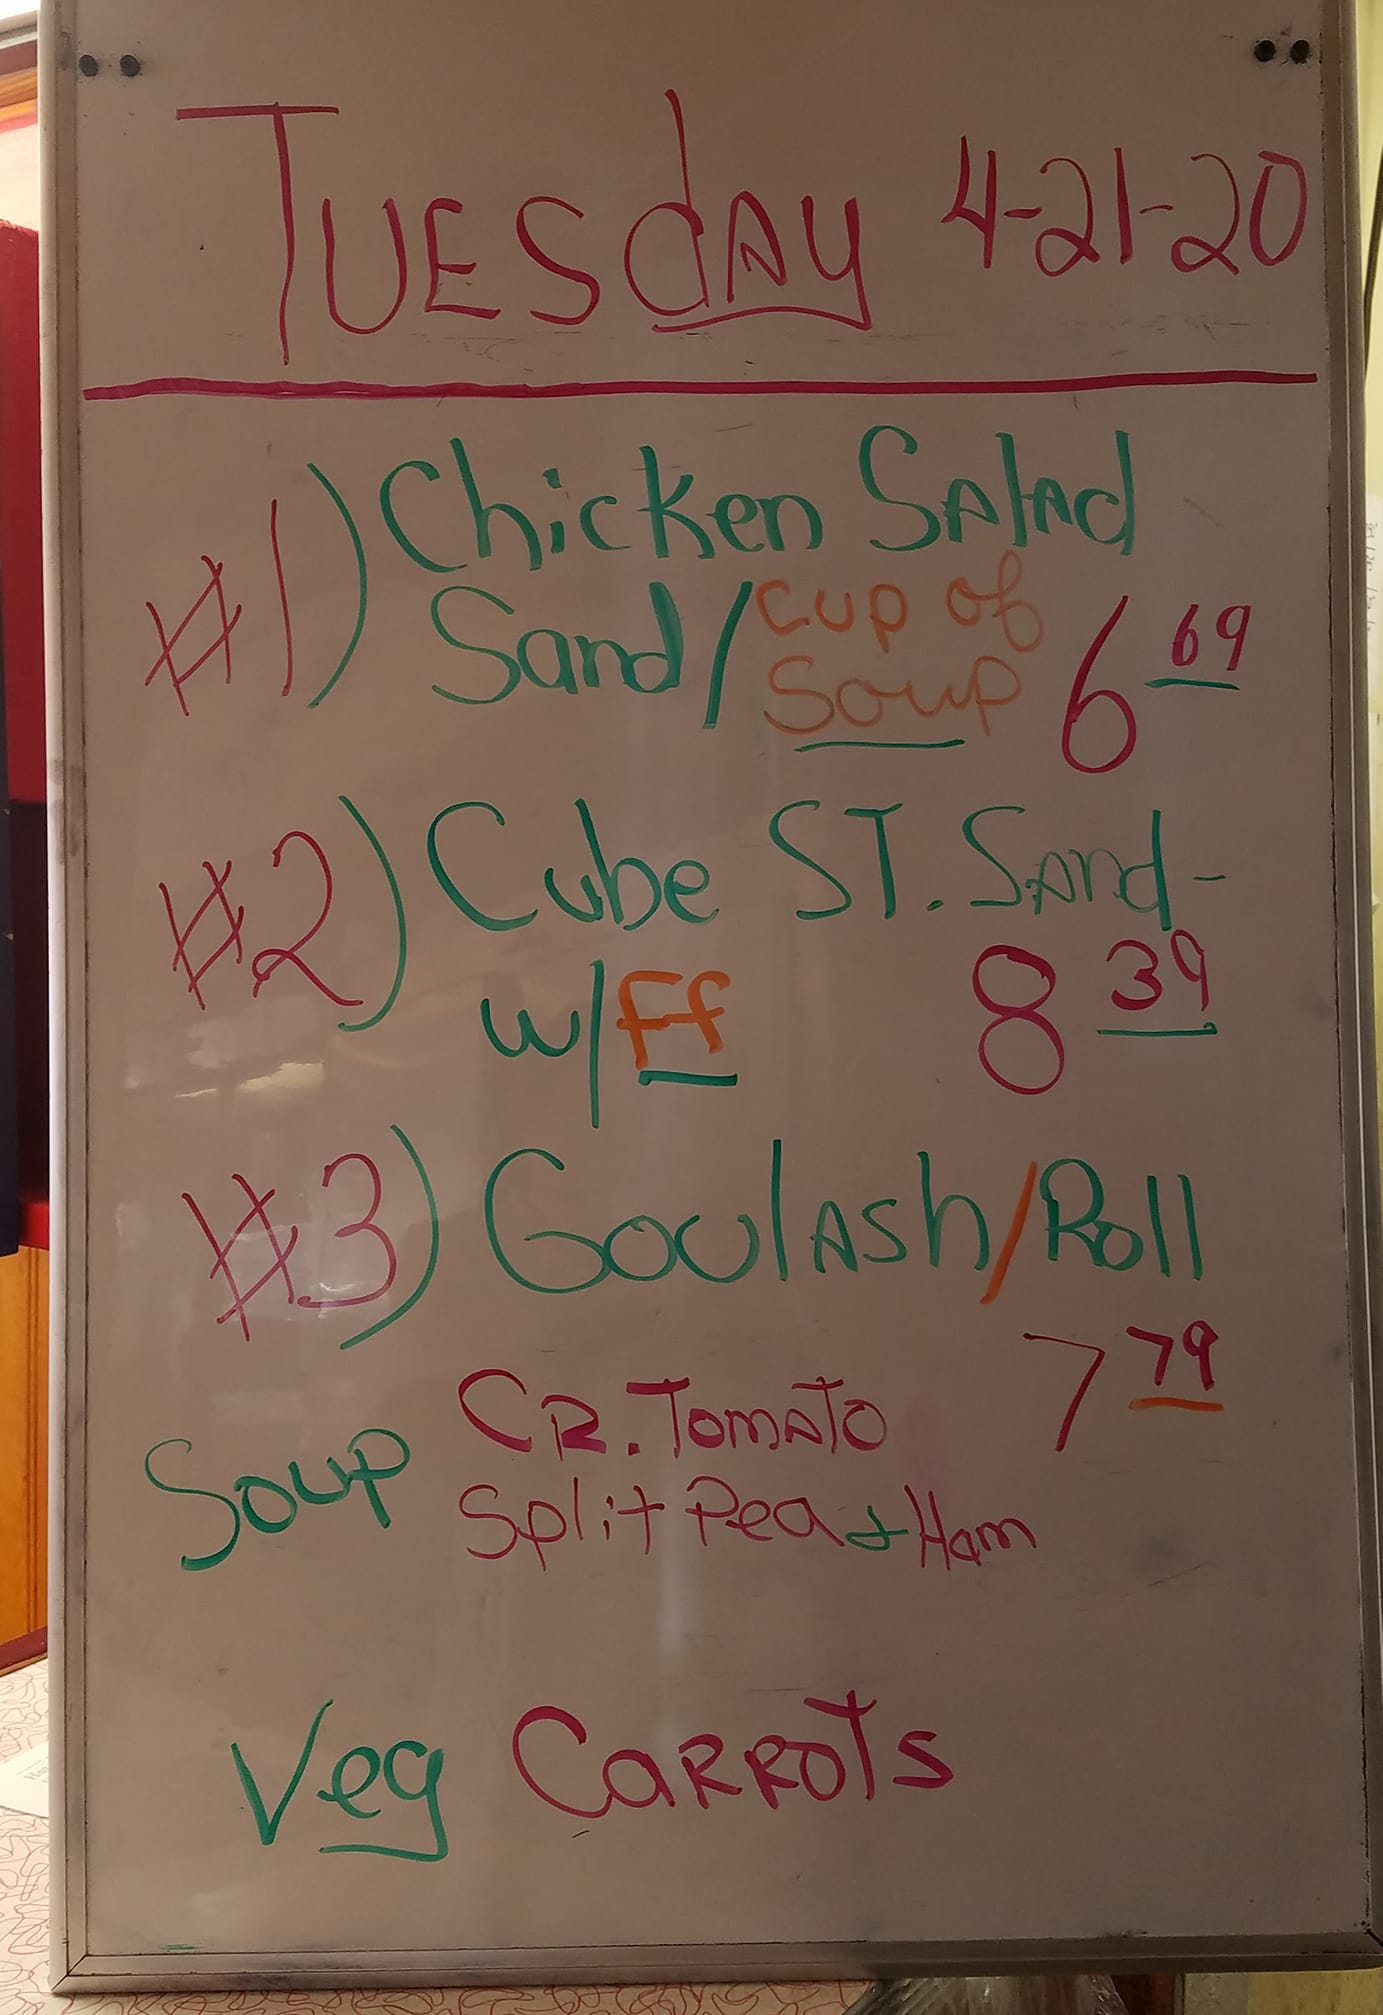 TUESdAY 4-21-20
#1) Chicken SAlAd
Sand/cup of
Soup 6 69
#2) Cube ST. SAnd-
w/Ff 8 39
#3) GoulASh/Roll
7 79
Soup CR. TomATo
Split Pea & Ham
Veg CaRRoTs